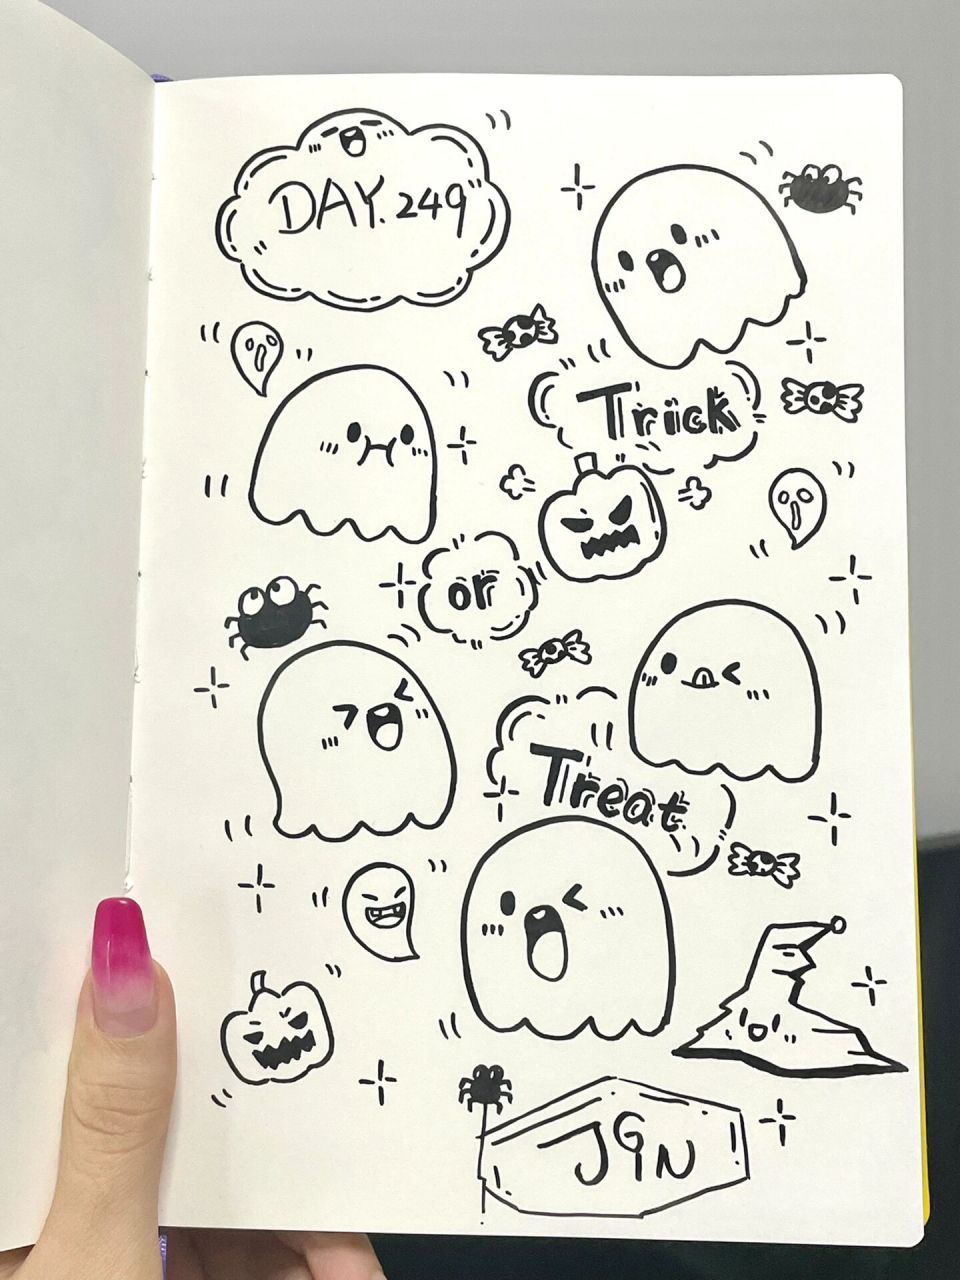 DAY.249
Trick
or
Treat
JGN